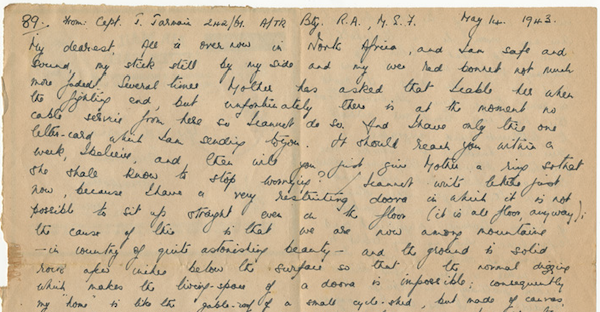 89. From: Capt. J. Jarmain 242/61. A/TK Bty. R.A., M.E.F. May 14. 1943.
My dearest, All is over now in North Africa, and I am safe and
sound, my stick still by my side and my wee red bonnet not much
more faded. Several times Mother has asked that I cable her when
the fighting end, but unfortunately there is at the moment no
cable service from here so I cannot do so. And I have only this one
letter-card which I am sending to you. It should reach you within a
week, I believe, and then will you just give Mother a ring so that
she shall know to stop worrying? I cannot write letters just
now, because I have a very restricting doova in which it is not
possible to sit up straight even on the floor (it is all floor anyway);
the cause of this is that we are now among mountains
— in country of quite astonishing beauty — and the ground is solid
rock a few inches below the surface so that the normal digging
which makes the living-space of a doova is impossible; consequently
my "home" is like the gable-roof of a small cycle-shed, but made of canvas,